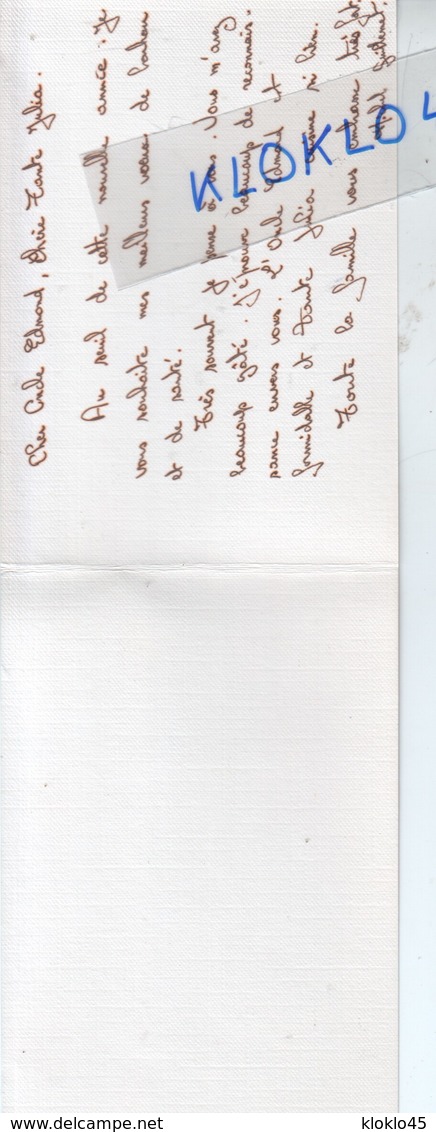 Cher Oncle Edmond, Chère Tante Julia.
Au seuil de cette nouvelle année je
vous souhaite mes meilleurs vœux de bonheur
et de santé.
Très souvent je pense à vous. Vous m'avez
beaucoup gâté. J'éprouve beaucoup de reconnais-
sance envers vous. L'Oncle Edmond et
formidable et Tante Julia aussi si bien.
Toute la famille vous embrasse très fort.
KLOKLO4
delcampe.net
kloklo45